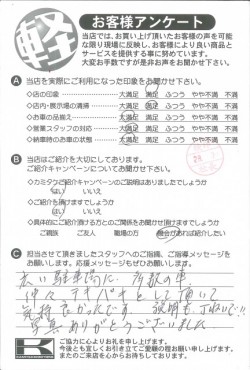 軽
お客様アンケート
当店では、お買い上げ頂いたお客様の声を可能
な限り現場に反映し、お客様により良い商品と
サービスを提供する事に努めています。
大変お手数ですが是非お声をお聞かせ下さい。
A 当店を実際にご利用になった印象をお聞かせ下さい。
◇店の印象 大満足 満足 ふつう やや不満 不満
◇店内・展示場の清掃 大満足 満足 ふつう やや不満 不満
◇お車の品揃え 大満足 満足 ふつう やや不満 不満
◇営業スタッフの対応 大満足 満足 ふつう やや不満 不満
◇納車時のお車の状態 大満足 満足 ふつう やや不満 不満
B 当店はご紹介を大切にしております。
ご紹介キャンペーンについてお聞かせ下さい。
◇カミタケご紹介キャンペーンのご説明はありましたでしょうか
はい いいえ
◇ご紹介を頂けますでしょうか
はい いいえ
◇具体的にご紹介頂ける方とのご関係をお聞かせ頂けますでしょうか
ご親族 ご友人 職場の方 機会があれば紹介したい
C 担当させて頂きましたスタッフへのご指摘、ご指導メッセージを
お願いします。応援メッセージもぜひお願いします。
広い駐車場に 多数の車
テキパキとして頂いて
気持良かったです。説明も丁ねいで!!
ありがとうございました
K
ご協力に心よりお礼を申し上げます。
今後とも宜しくお引き立てご愛顧の程お願い申し上げます。
またのご来店を心からお待ちしております。